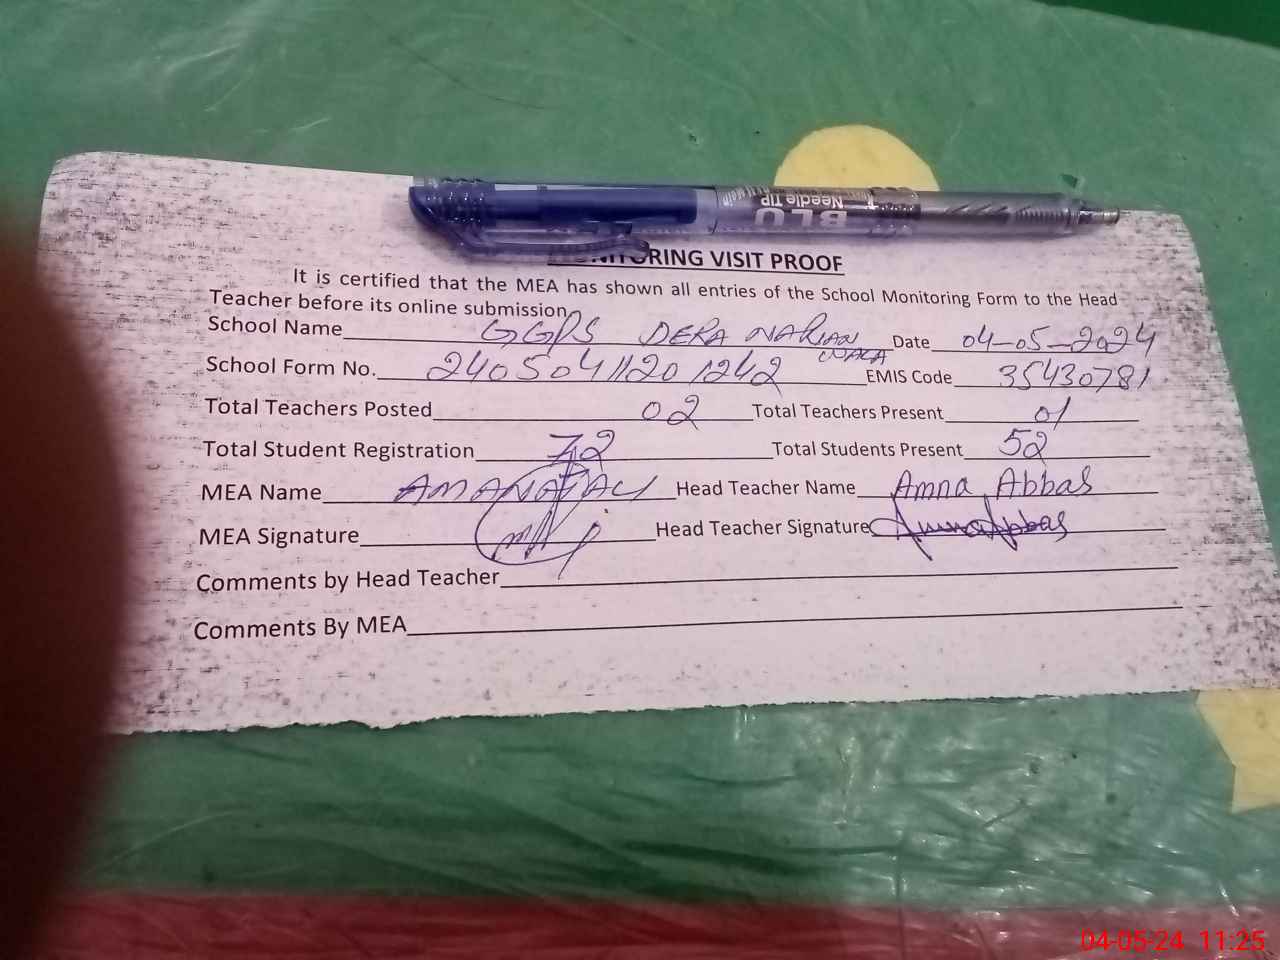 BLU
Needle TIP
MONITORING VISIT PROOF
It is certified that the MEA has shown all entries of the School Monitoring Form to the Head
Teacher before its online submission
School Name GGPS DERA NARIAN WALA Date 04-05-2024
School Form No. 2405041120 1242 EMIS Code 35430781
Total Teachers Posted 02 Total Teachers Present 01
Total Student Registration 72 Total Students Present 52
MEA Name AMANAT ALI Head Teacher Name Amna Abbas
MEA Signature Head Teacher Signature Amna Abbas
Comments by Head Teacher
Comments By MEA
04-05-24 11:25